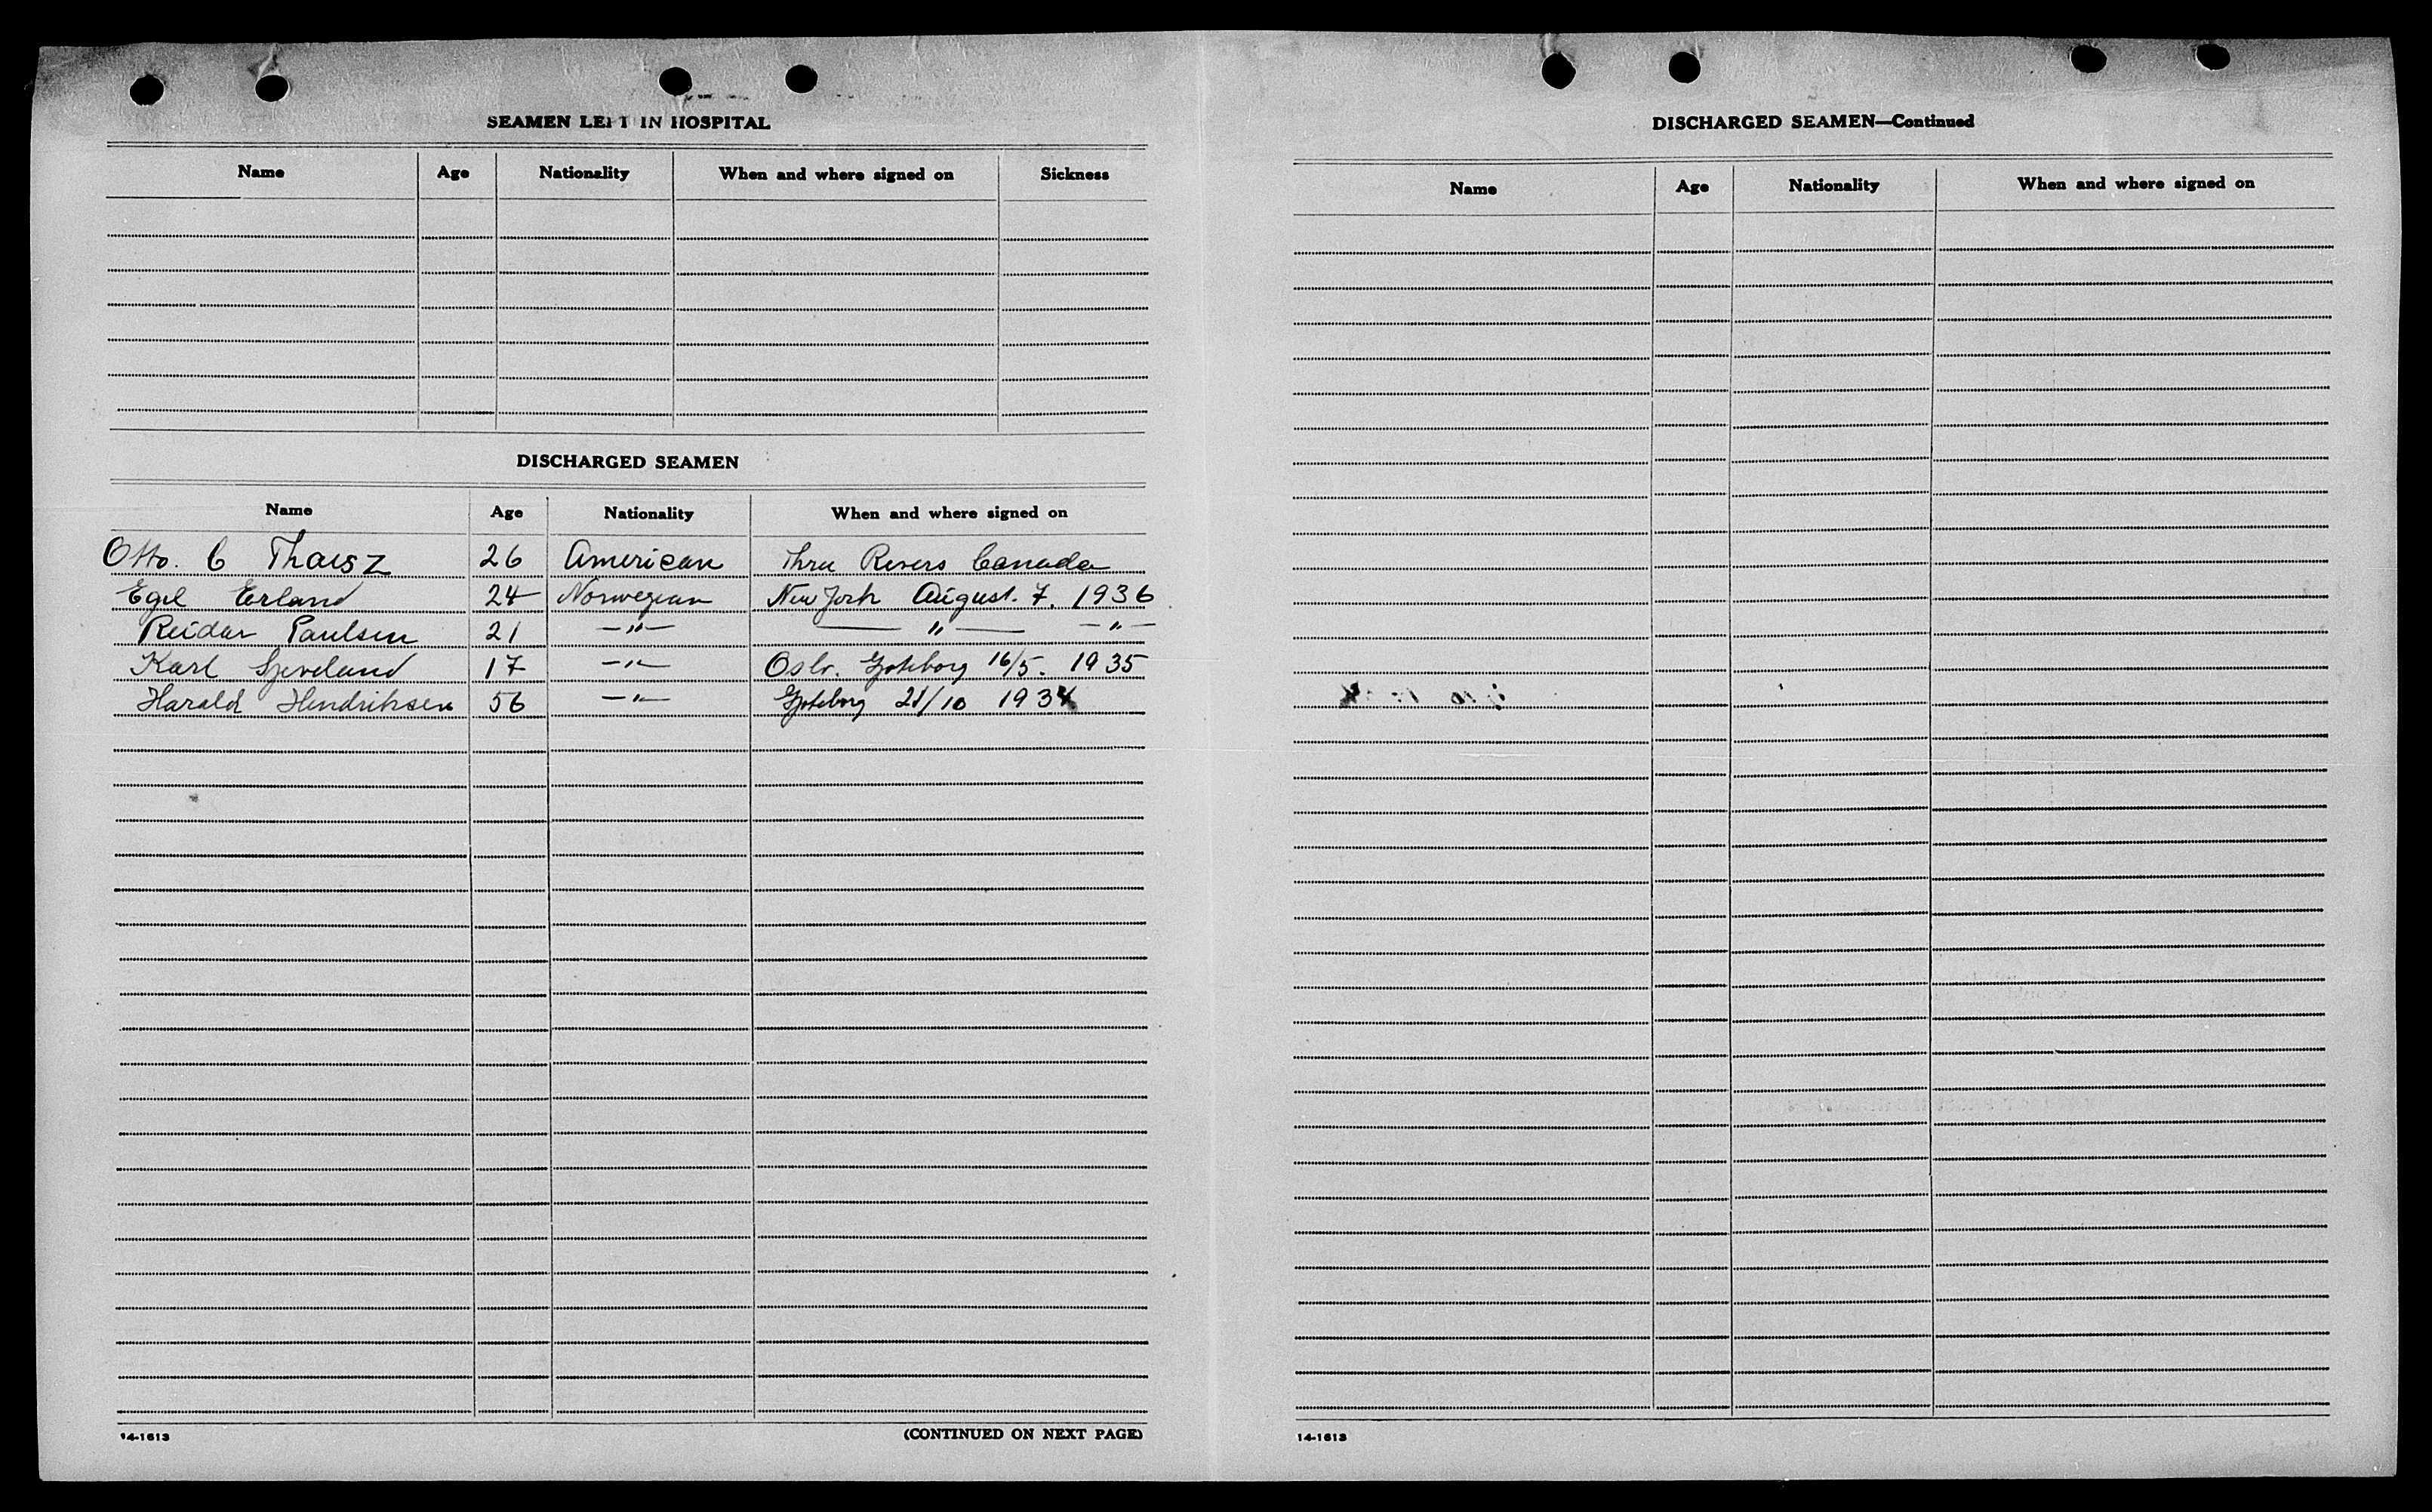 SEAMEN LEFT IN HOSPITAL
Name Age Nationality When and where signed on Sickness
DISCHARGED SEAMEN
Name Age Nationality When and where signed on
Otto. C Thaisz 26 American Three Rivers Canada
Egil Erland 24 Norwegian New York August. 7. 1936
Reidar Paulsen 21 —"— —— " —— —"—
Karl 17 —"— Oslo. Goteborg 16/5. 1935
Harald Hendriksen 56 —"— Goteborg 21/10 1934
14-1613 (CONTINUED ON NEXT PAGE)
DISCHARGED SEAMEN—Continued
Name Age Nationality When and where signed on
14-1613